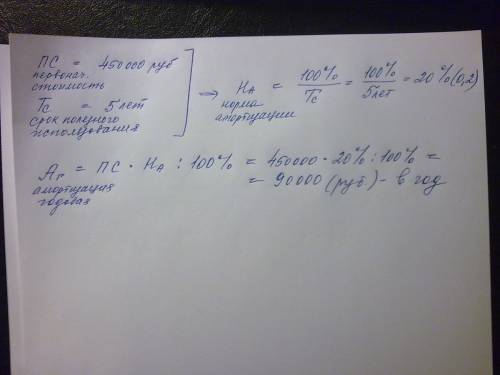 ПС = 450000 руб
первонач.
стоимость
Тс = 5 лет
срок полезного
использования
⇒ На = 100% / Тс = 100% / 5 лет = 20% (0,2)
норма
амортизации
Аг = ПС · На : 100% = 450000 · 20% : 100% =
амортизация
годовая
= 90000 (руб) - в год